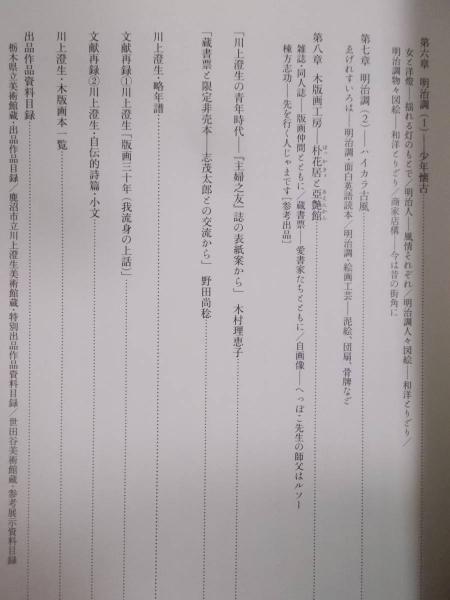 第六章 明治調(1)――少年懐古
女と洋燈――揺れる灯のもとで/明治人――風情それぞれ/明治調人々図絵――和洋とりどり/
明治調物々図絵――和洋とりどり/商家店構――今は昔の街角に
第七章 明治調(2)――ハイカラ古風
ゑげれすいろは――明治調・面白英語読本/明治調・絵画工芸――泥絵、団扇、骨牌など
第八章 木版画工房――朴花居と亞艶館
ほっかきょ あえんかん
雑誌・同人誌――版画仲間とともに/蔵書票――愛書家たちとともに/自画像――へっぽこ先生の師父はルソー
棟方志功――先を行く人じゃまです[参考出品]
「川上澄生の青年時代――『主婦之友』誌の表紙案から」 木村理恵子
「蔵書票と限定非売本――志茂太郎との交流から」 野田尚稔
川上澄生・略年譜
文献再録①川上澄生「版画三十年(我流身の上話)」
文献再録②川上澄生・自伝的詩篇・小文
川上澄生・木版画本一覧
出品作品資料目録
栃木県立美術館蔵・出品作品目録/鹿沼市立川上澄生美術館蔵・特別出品作品資料目録/世田谷美術館蔵・参考展示資料目録